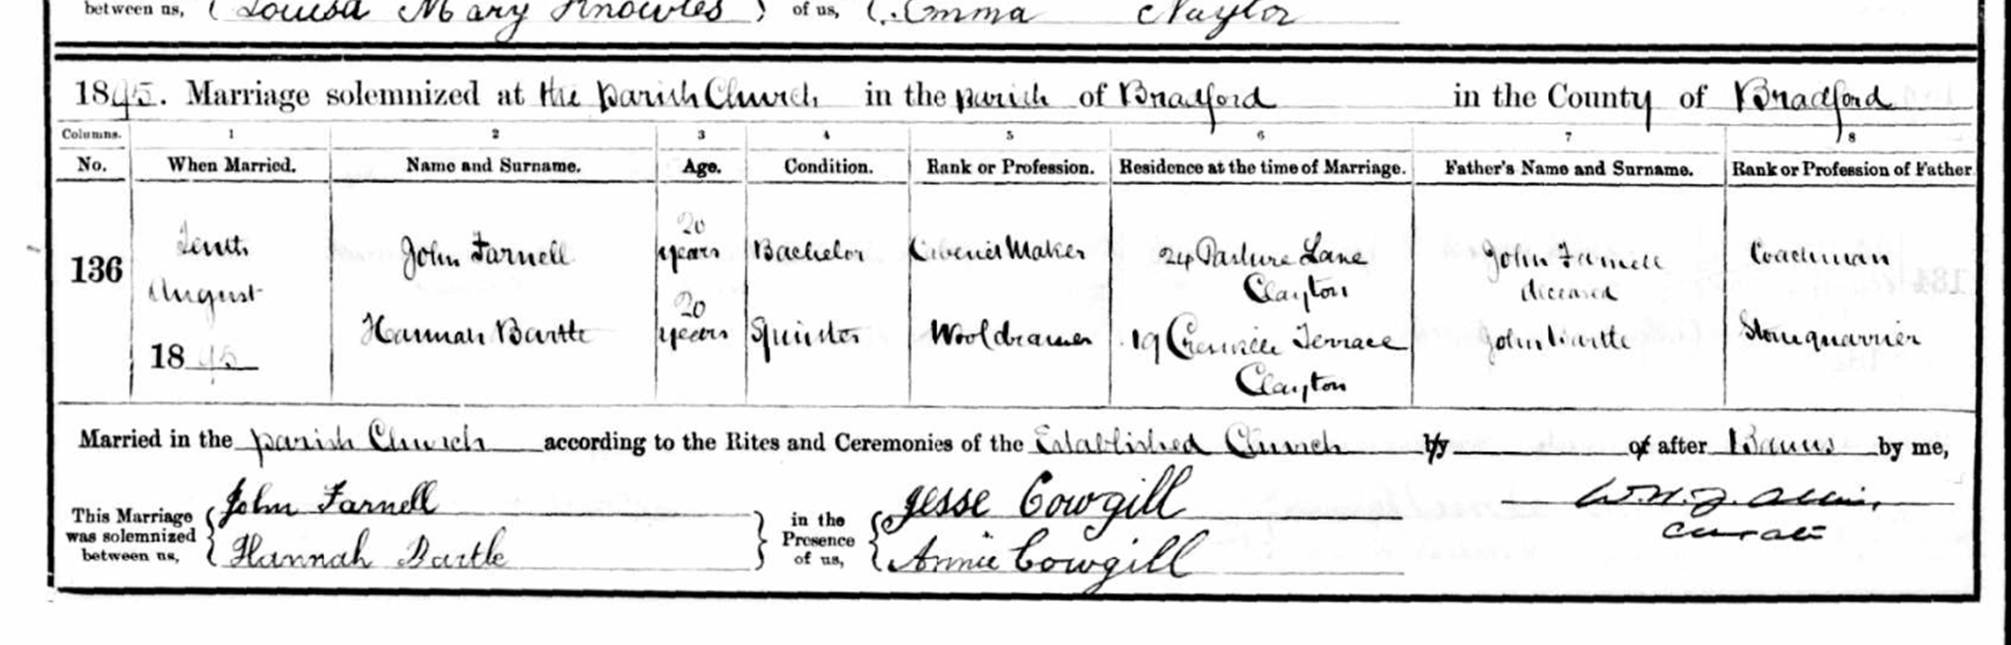 between us, Louisa Mary Knowles of us, Emma Naylor
1895. Marriage solemnized at the parish Church in the parish of Bradford in the County of Bradford
Columns. 1 2 3 4 5 6 7 8
No. When Married. Name and Surname. Age. Condition. Rank or Profession. Residence at the time of Marriage. Father's Name and Surname. Rank or Profession of Father
136 Tenth August 1895
John Farnell 20 years Bachelor Cabinet Maker 24 Pasture Lane Clayton John Farnell deceased Coachman
Hannah Bartle 20 years Spinster Wooldrawer 19 Terrace Clayton John Bartle Stonequarrier
Married in the parish Church according to the Rites and Ceremonies of the Established Church by or after Banns by me,
This Marriage was solemnized between us, John Farnell
Hannah Bartle
in the Presence of us, Jesse Cowgill
Annie Cowgill
W.H.J.
Curate